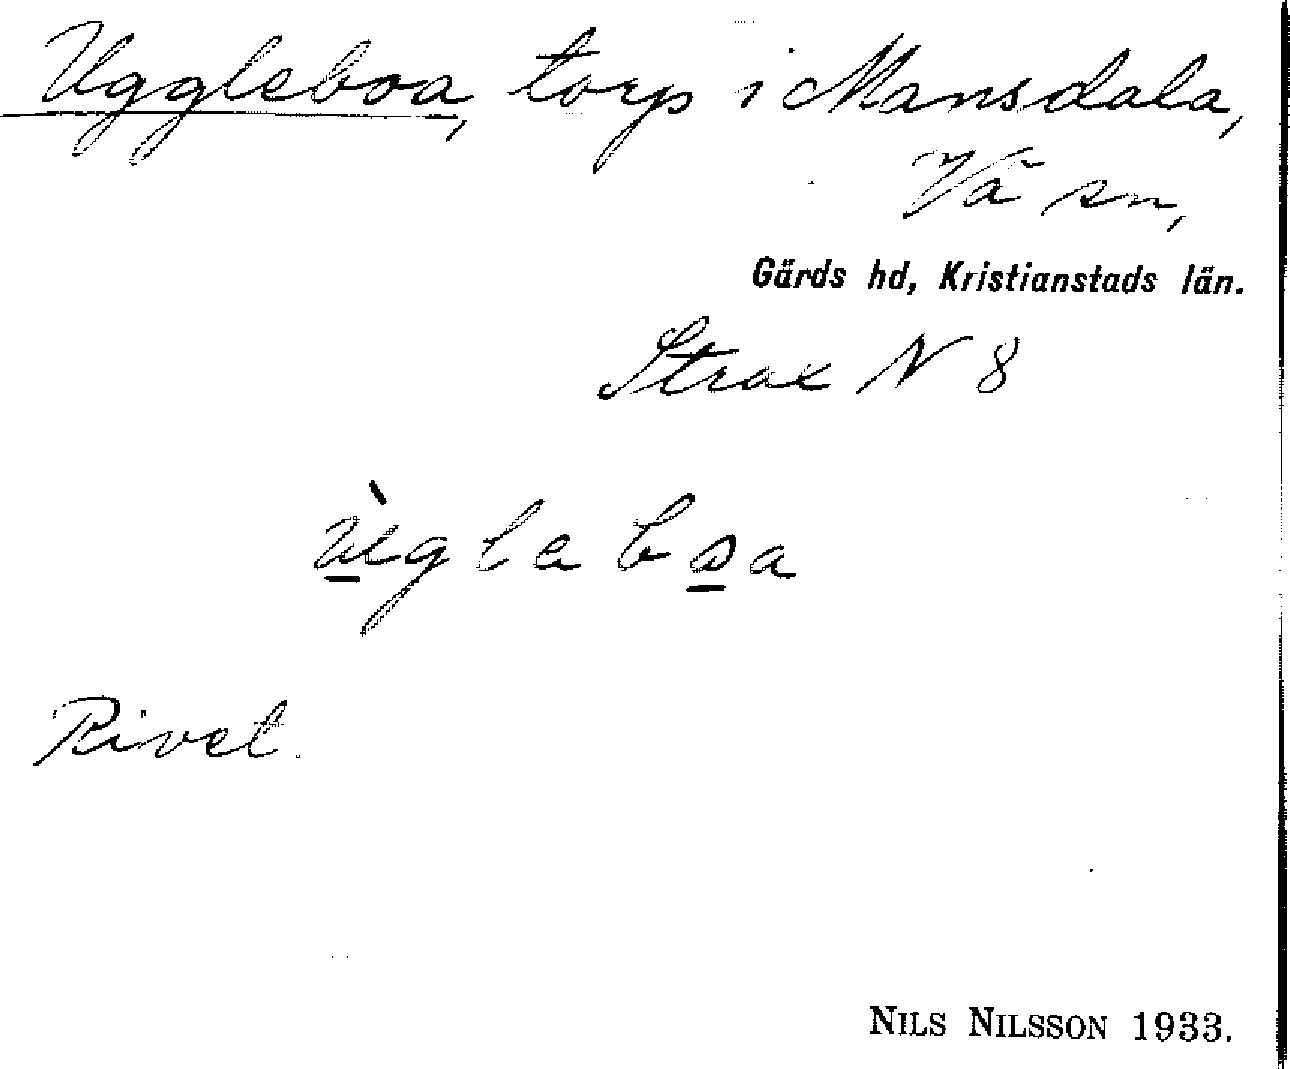 Uggleboa, torp i Mansdala,
Vä sn,
Gärds hd, Kristianstads län.
Strax N 8
Rivet.
NILS NILSSON 1933.